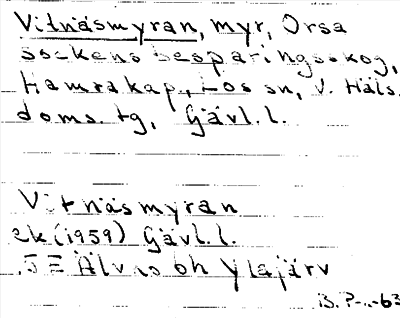 Vitnäsmyran, myr, Orsa
sockens besparingsskog,
Hamrakap., Los sn, V. Häls.
doms. tg, Gävl. l.
Vitnäsmyran
ek (1959) Gävl. l.
SE Älvho bh Ylajärv